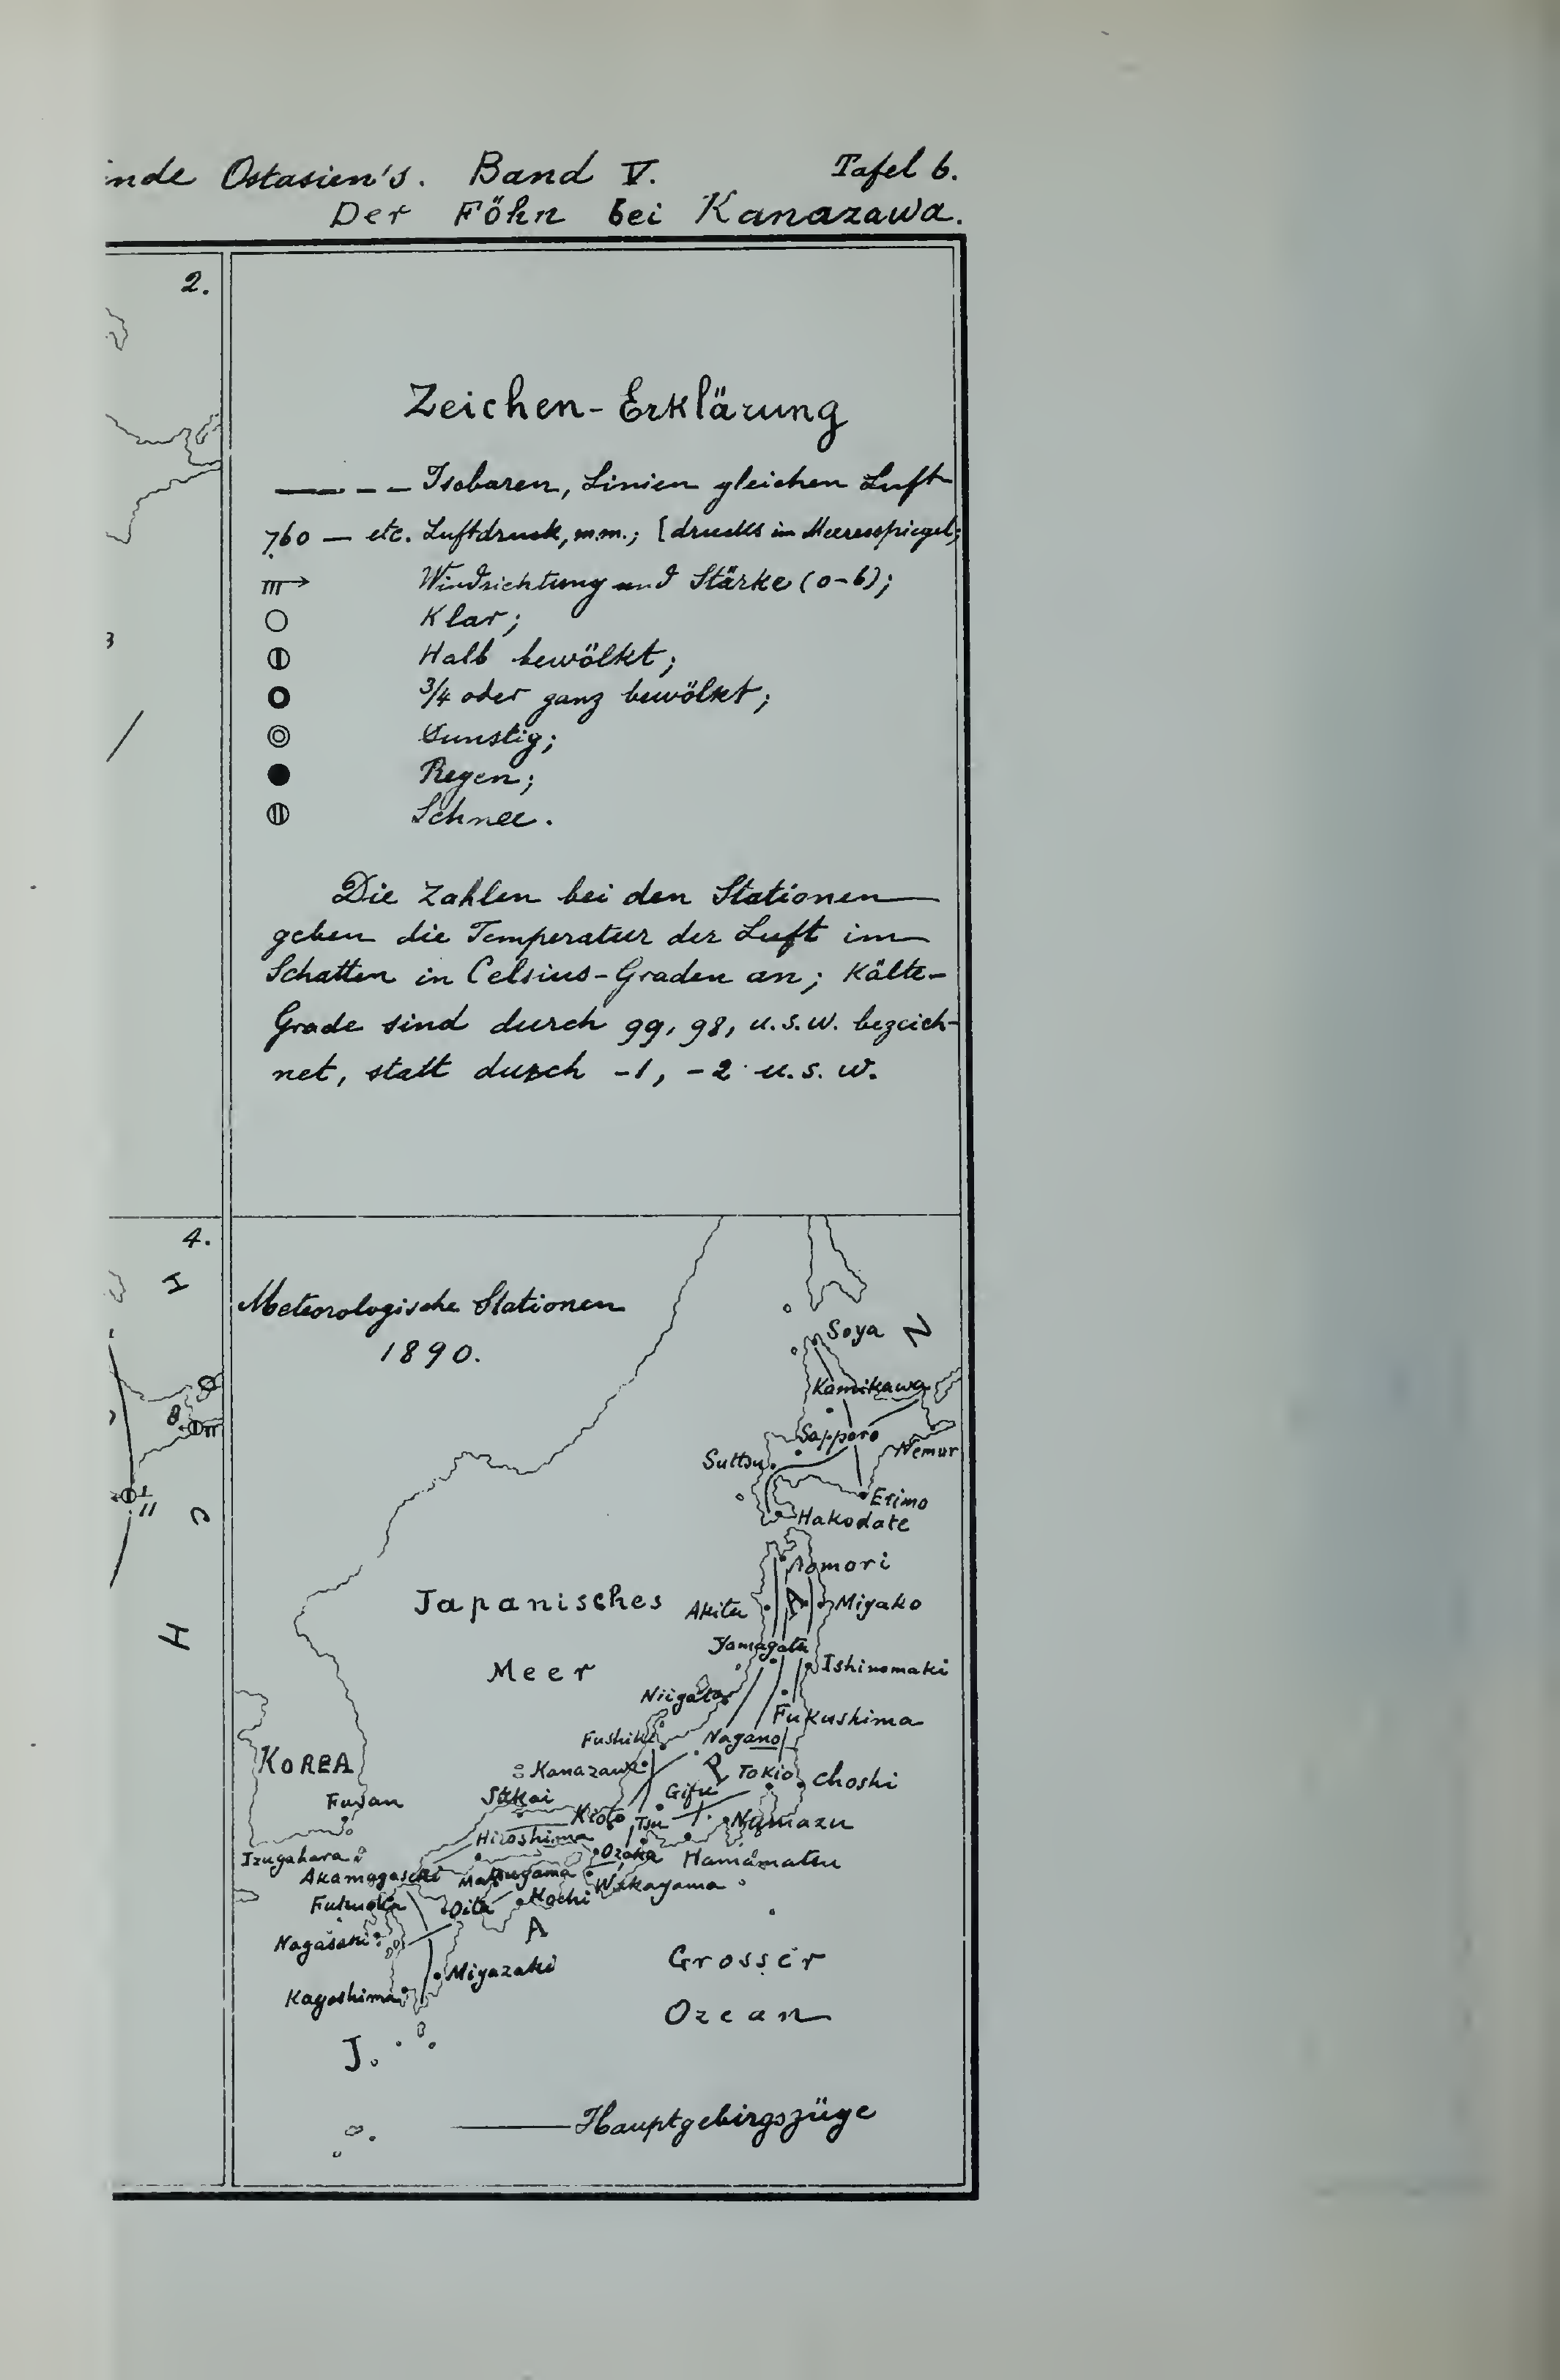 inde Ostasien's. Band V. Tafel 6.
Der Föhn bei Kanazawa.
2.
Zeichen-Erklärung
Isobaren, Linien gleichen Luft
760 — etc. Luftdruck, m.m.; [drucks im Meeresspiegel;
Windrichtung und Stärke (0-6);
Klar;
Halb bewölkt;
3/4 oder ganz bewölkt;
Dunstig;
Regen;
Schnee.
Die Zahlen bei den Stationen
geben die Temperatur der Luft im
Schatten in Celsius-Graden an; Kälte-
Grade sind durch 99, 98, u.s.w. bezeich-
net, statt durch -1, -2 u.s.w.
3
4.
H
8
11
H
Meteorologische Stationen
1890.
Soya
N
Kamikawa
Sapporo
Nemur
Suttsu
Erimo
Hakodate
Aomori
Japanisches
Akita
A
Miyako
Yamagata
Meer
Ishinomaki
Niigata
Fukushima
Fushiki
Nagano
KOREA
Kanazawa
P
Tokio
Choshi
Fusan
Sakai
Gifu
Kioto
Tsu
Numazu
Hiroshima
Izugahara
Ozaka
Hamamatsu
Akamagaseki
Matsugama
Wakayama
Fukuoka
Oita
Kochi
A
Nagasaki
Grosser
Miyazaki
Kagoshima
Ozean
J.
Hauptgebirgszüge